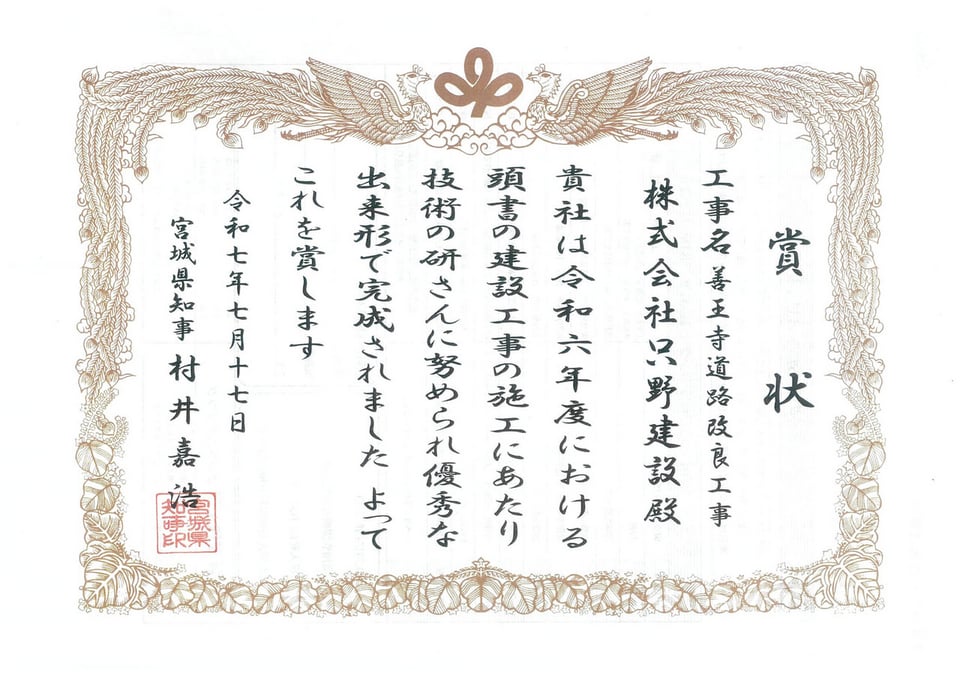 賞状
工事名 善王寺道路改良工事
株式会社只野建設殿
貴社は令和六年度における
頭書の建設工事の施工にあたり
技術の研さんに努められ優秀な
出来形で完成されました よって
これを賞します
令和七年七月十七日
宮城県知事 村井嘉浩
宮城県知事印